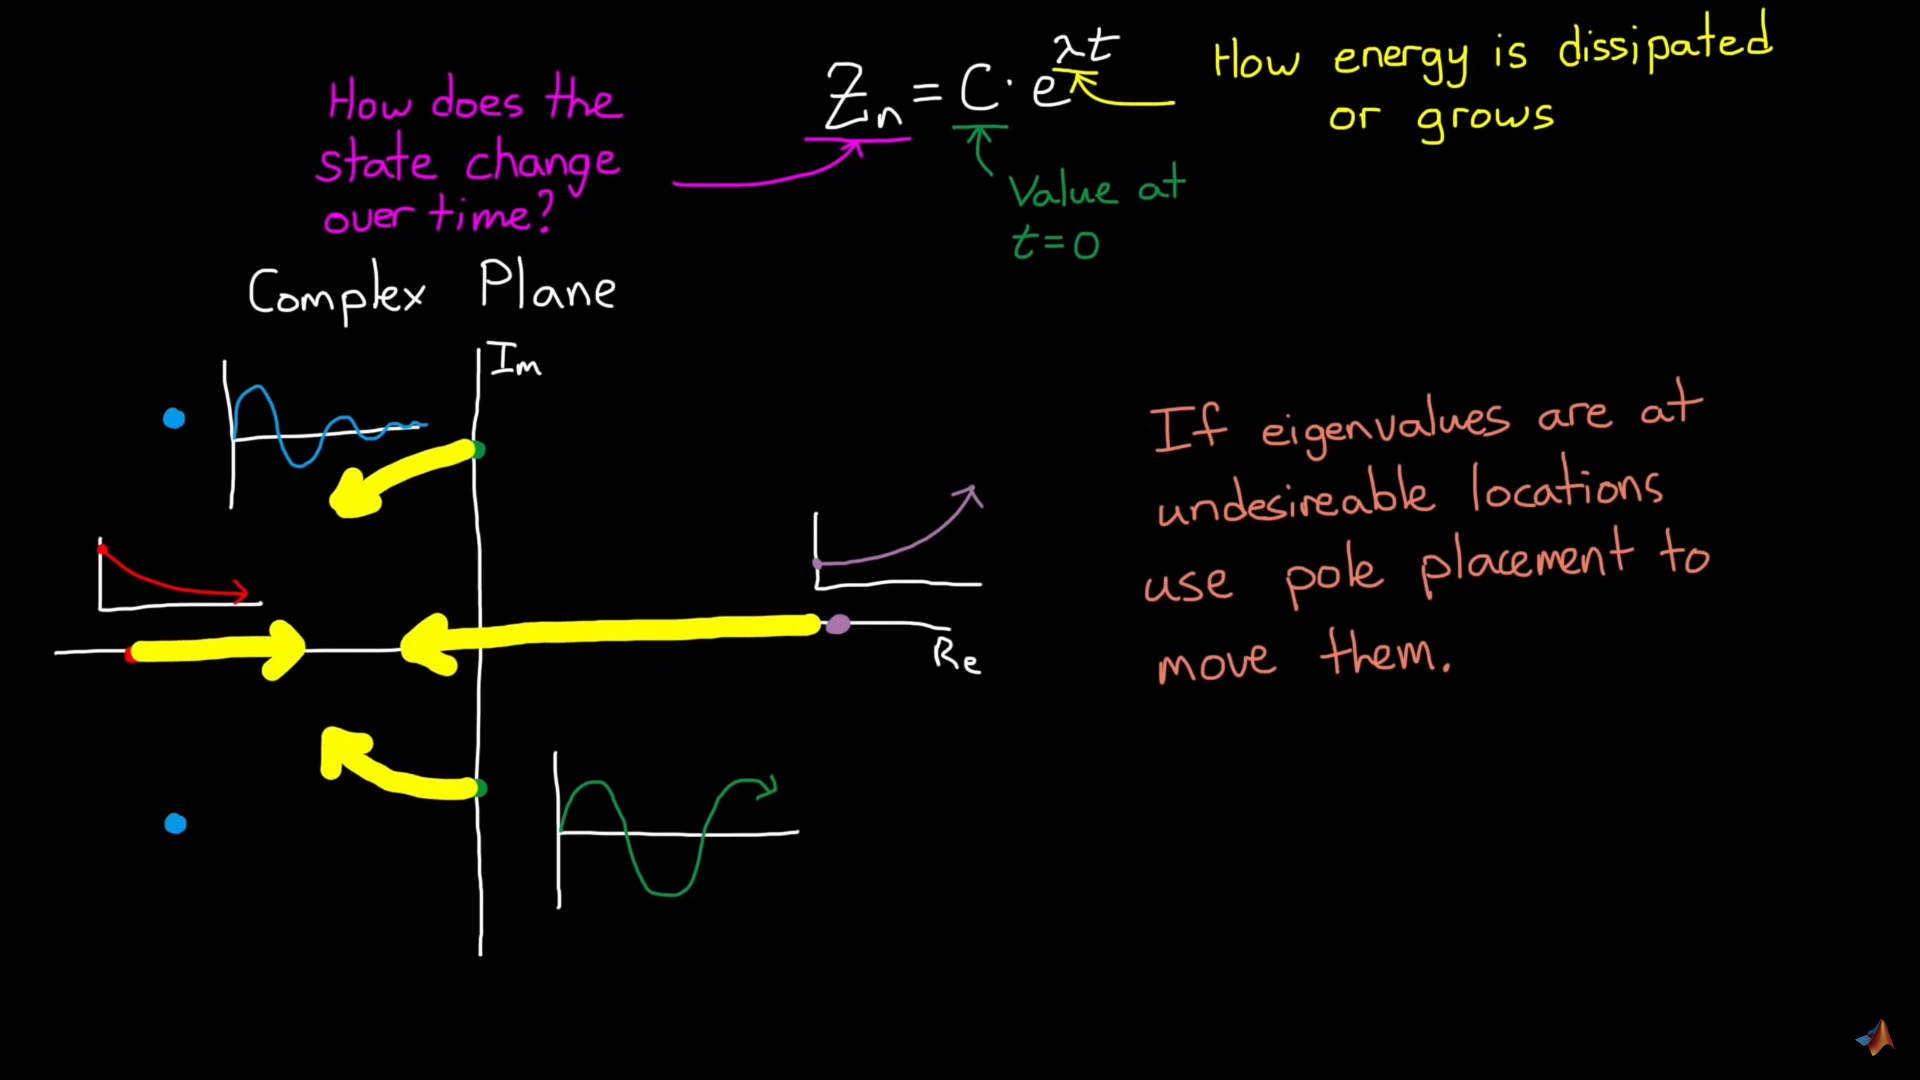 How does the
state change
over time?
Zn = C · e^λt
How energy is dissipated
or grows
Value at
t=0
Complex Plane
Im
Re
If eigenvalues are at
undesireable locations
use pole placement to
move them.